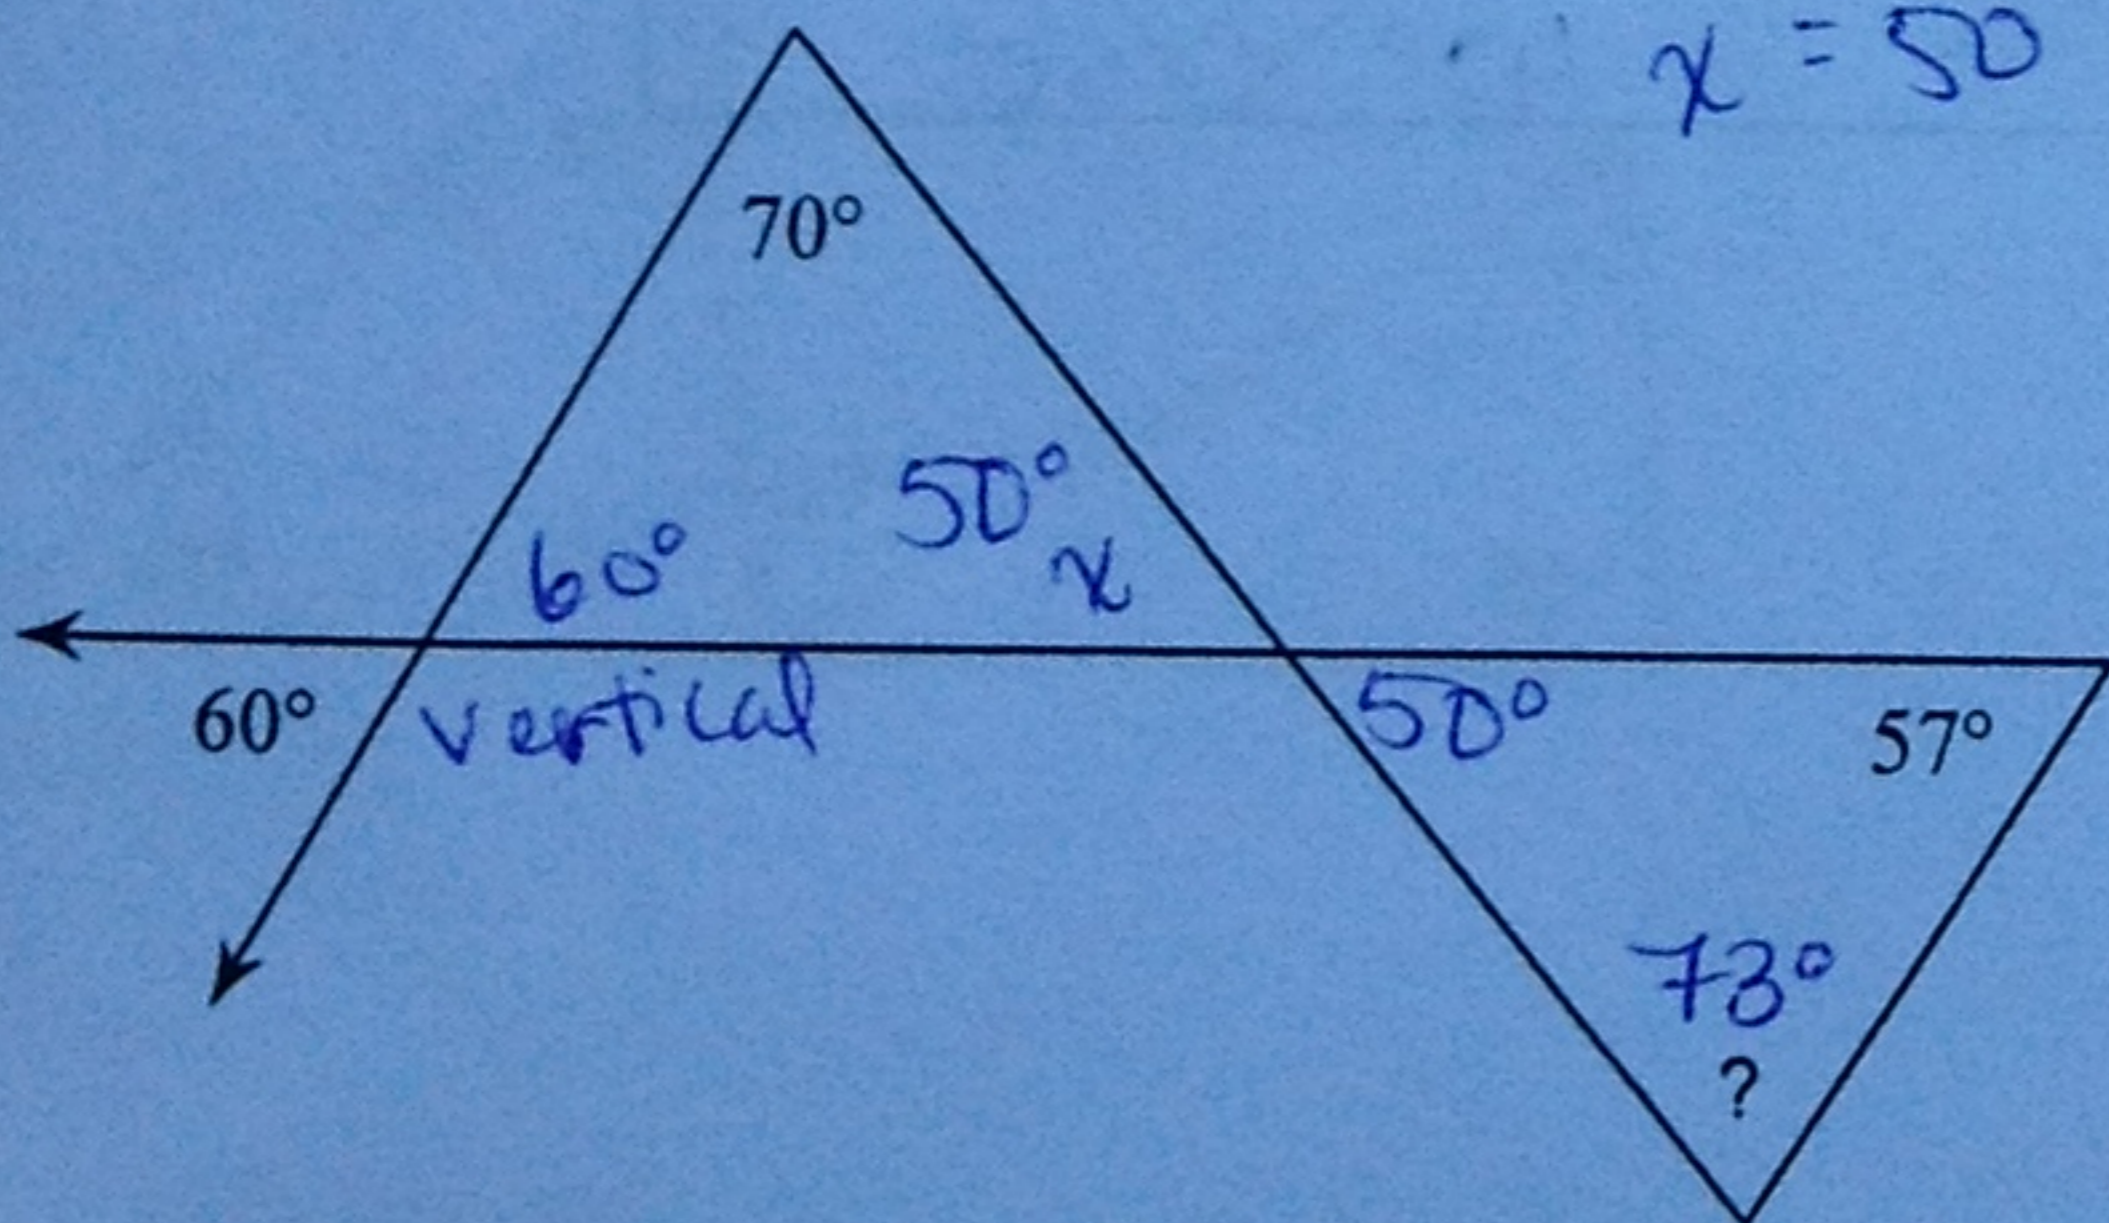 x = 50
70°
50°
60°
x
60°
vertical
50°
57°
73°
?